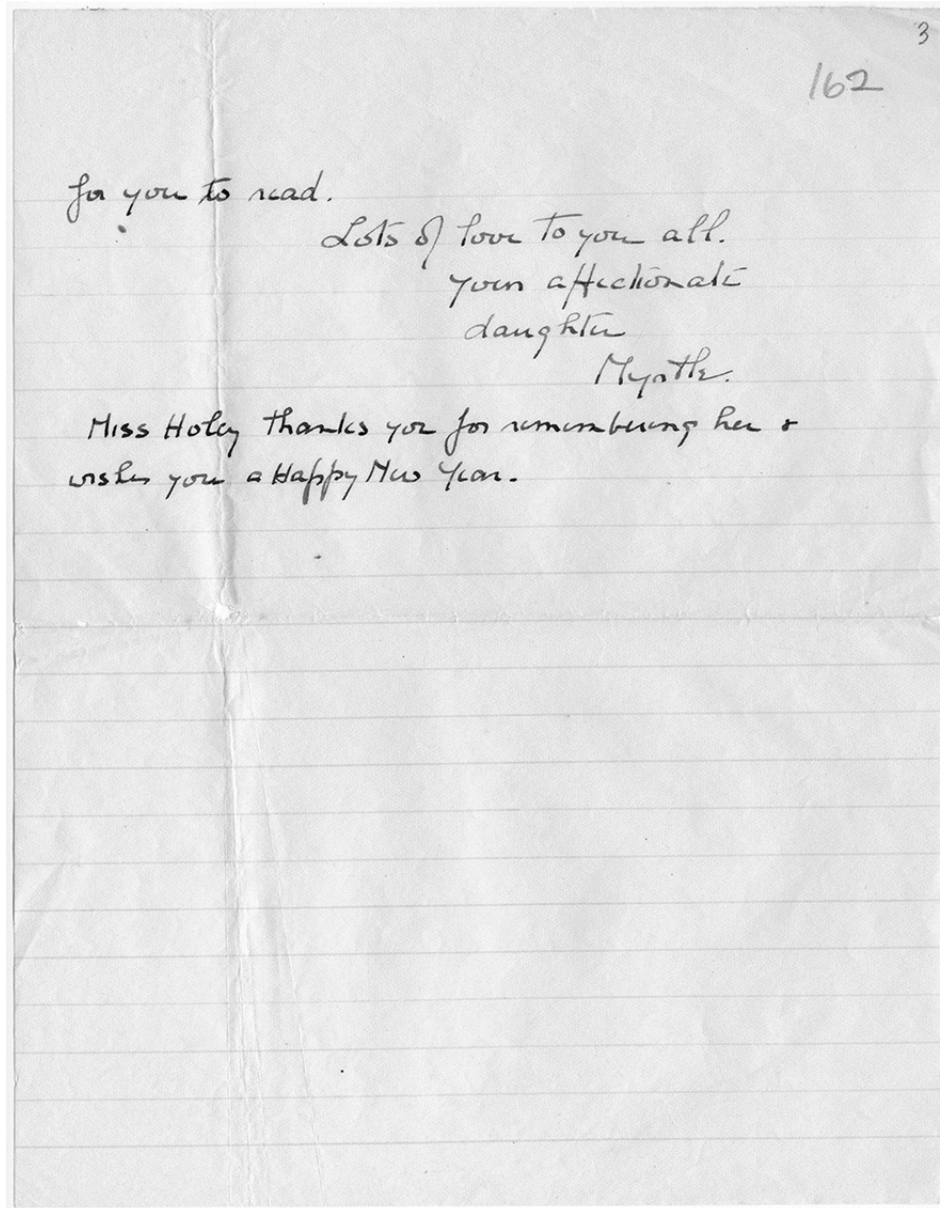 3
162
for you to read.
Lots of love to you all.
your affectionate
daughter
Myrtle.
Miss Holey thanks you for remembering her &
wishes you a Happy New Year.